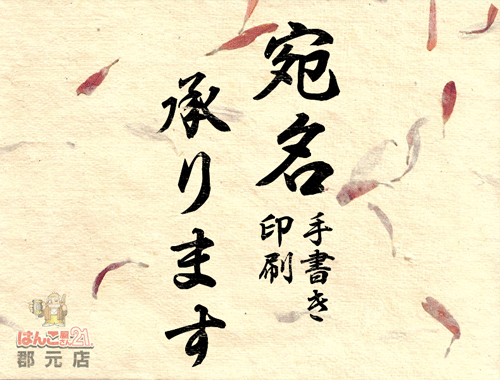 宛名
手書き
印刷
承ります
はんこ屋さん21
郡元店